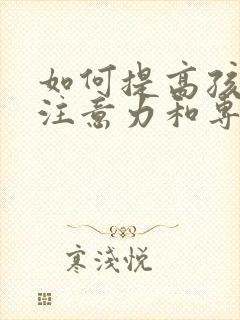 如何提高孩
注意力和专
寒浅悦